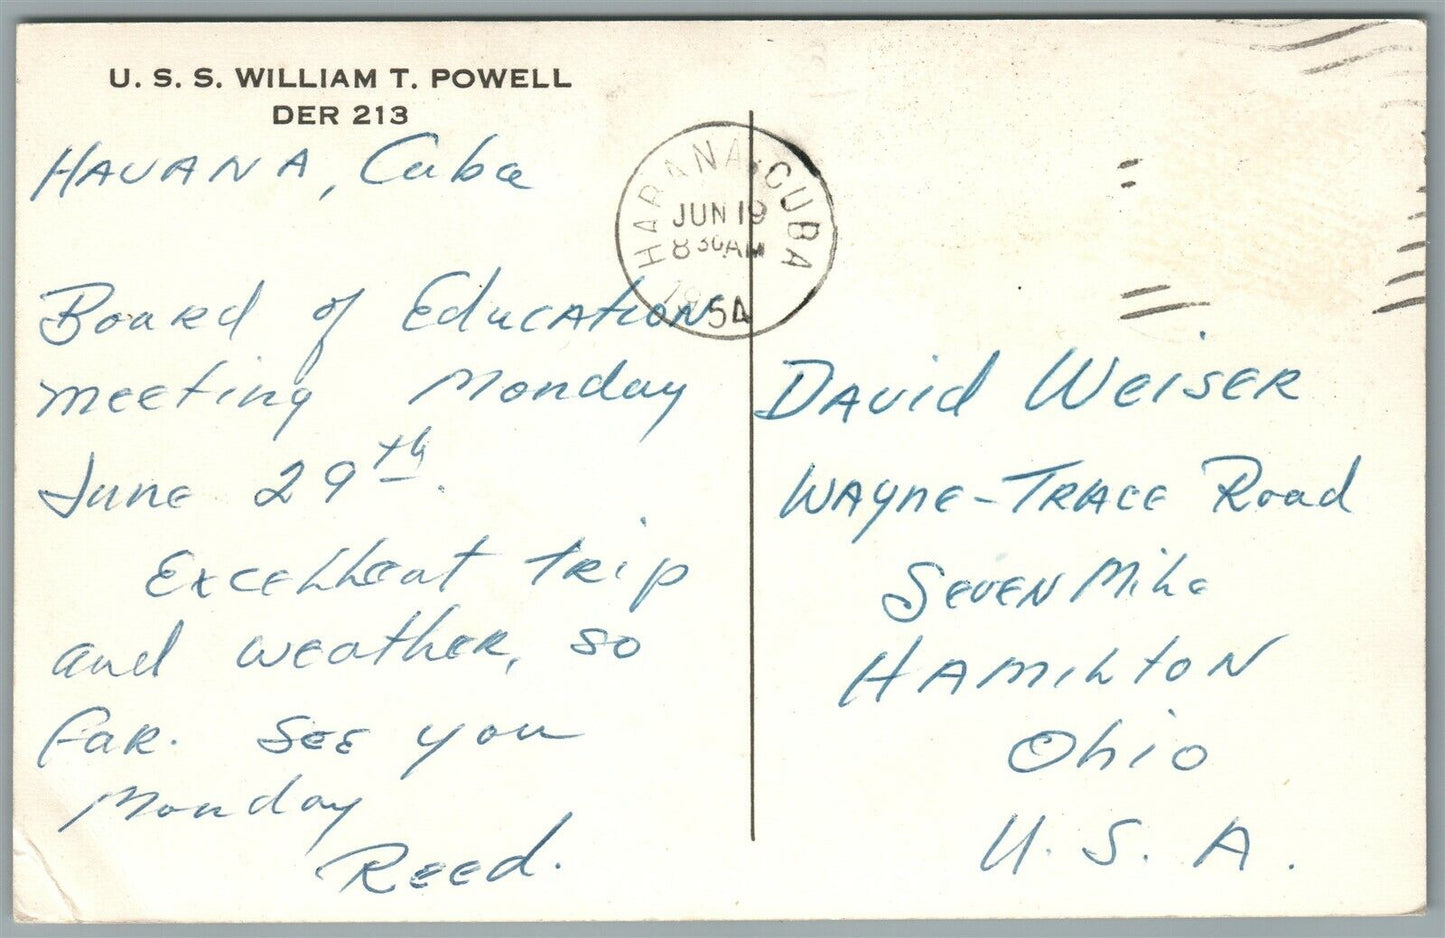 U. S. S. WILLIAM T. POWELL
DER 213
HAVANA, Cuba
HABANA, CUBA
JUN 19
8 30 AM
1954
Board of Education
meeting Monday
June 29th.
Excellent trip
and weather, so
far. See you
Monday
Reed.
David Weiser
Wayne-Trace Road
Seven Mile
Hamilton
Ohio
U. S. A.